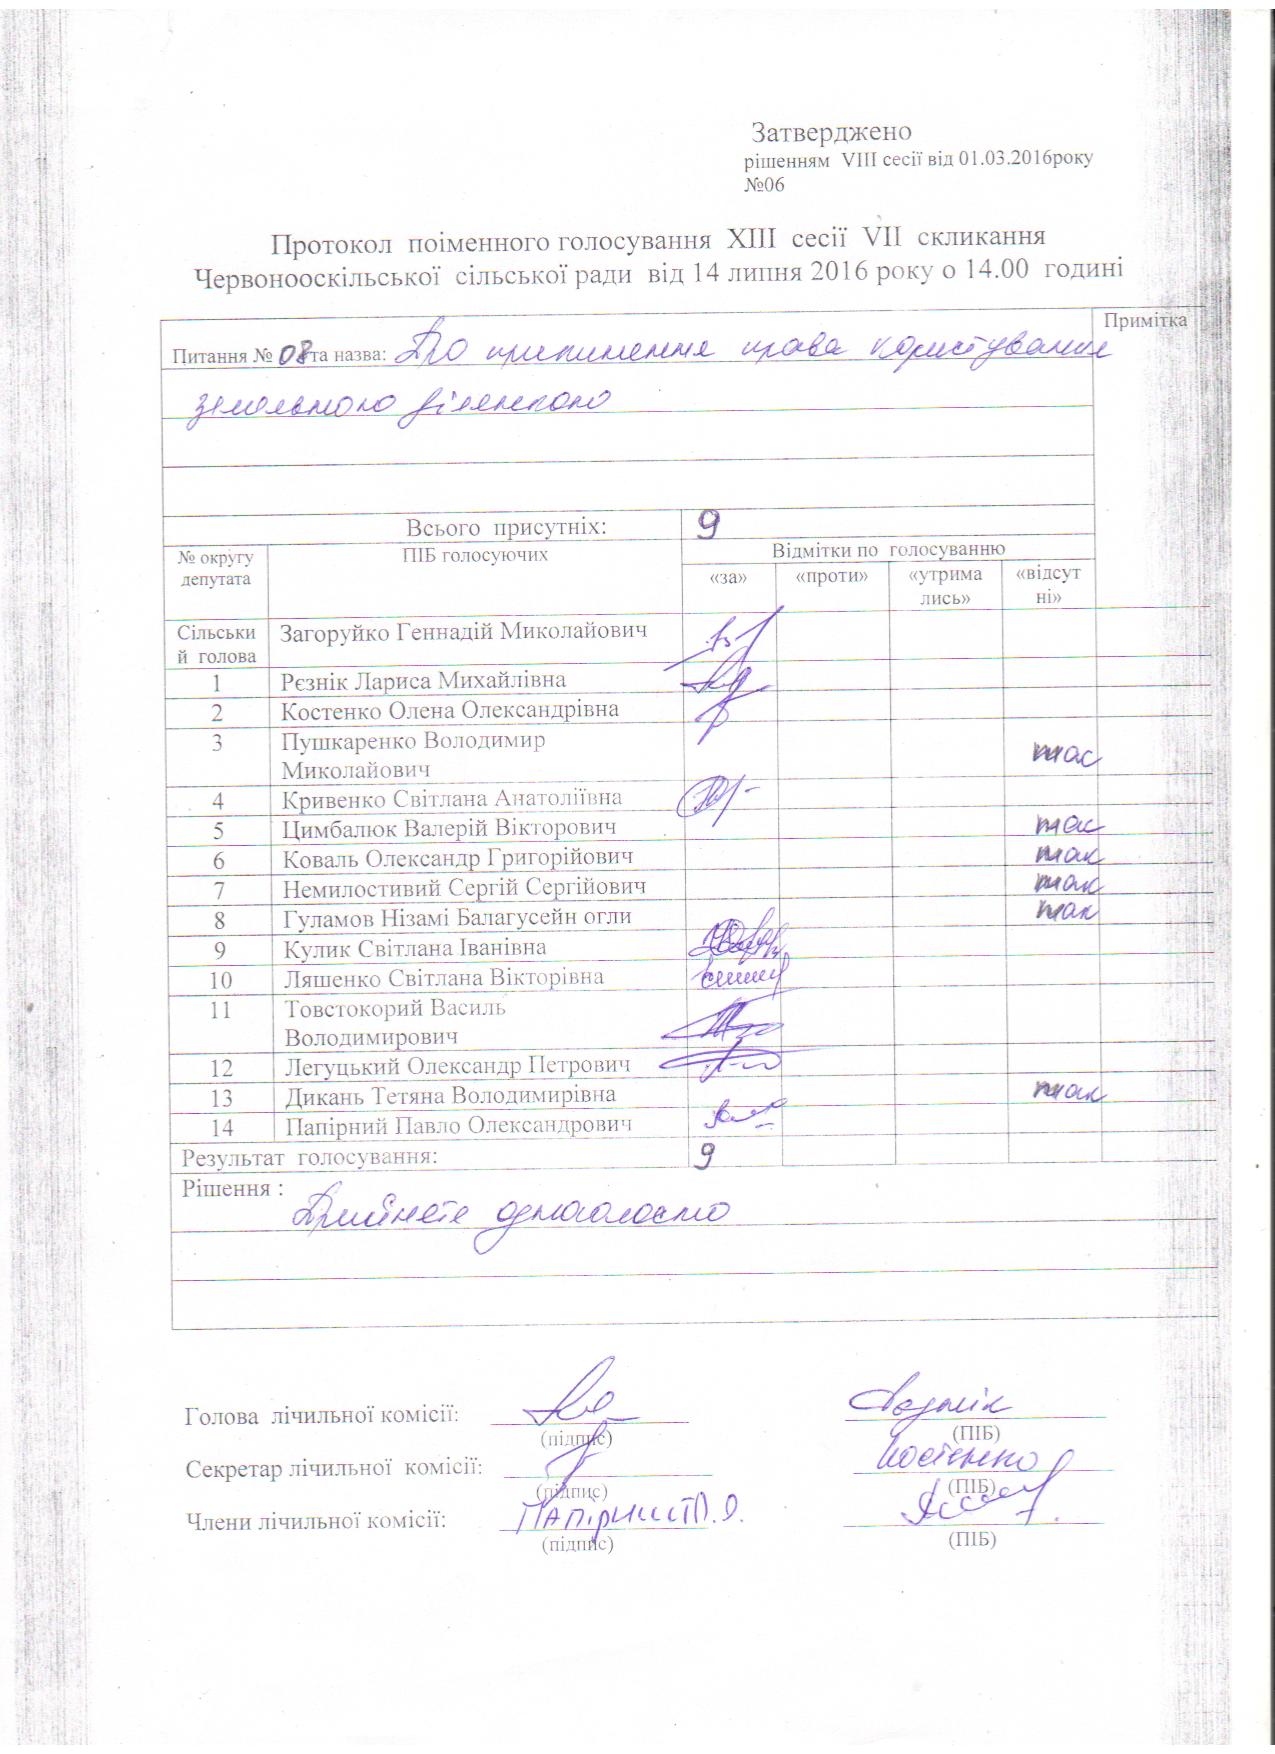 Затверджено
рішенням VIII сесії від 01.03.2016року
№06
Протокол поіменного голосування XIII сесії VII скликання
Червонооскільської сільської ради від 14 липня 2016 року о 14.00 годині
Примітка
Питання № 08 та назва: Про припинення права користування
земельною ділянкою
Всього присутніх: 9
№ округу депутата ПІБ голосуючих Відмітки по голосуванню
«за» «проти» «утрима лись» «відсут ні»
Сільськи й голова Загоруйко Геннадій Миколайович
1 Рєзнік Лариса Михайлівна
2 Костенко Олена Олександрівна
3 Пушкаренко Володимир
Миколайович так
4 Кривенко Світлана Анатоліївна
5 Цимбалюк Валерій Вікторович так
6 Коваль Олександр Григорійович так
7 Немилостивий Сергій Сергійович так
8 Гуламов Нізамі Балагусейн огли так
9 Кулик Світлана Іванівна
10 Ляшенко Світлана Вікторівна
11 Товстокорий Василь
Володимирович
12 Легуцький Олександр Петрович
13 Дикань Тетяна Володимирівна так
14 Папірний Павло Олександрович
Результат голосування: 9
Рішення :
Прийнете одноголосно
Голова лічильної комісії:
(підпис) (ПІБ)
Секретар лічильної комісії: Костенко
(підпис) (ПІБ)
Члени лічильної комісії:
(підпис) (ПІБ)